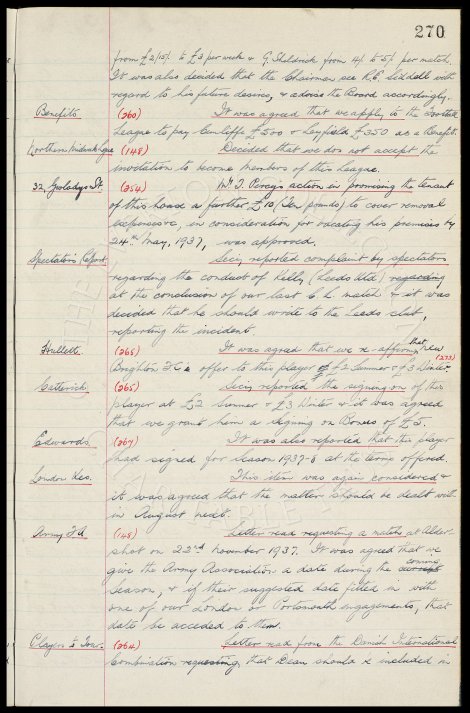 270
from £2/15/- to £3 per week & G. Sheldrick from 4/- to 5/- per match.
It was also decided that the Chairman see R.E. Liddell with
regard to his future desires, & advise the Board accordingly.
Benefits. (260) It was agreed that we apply to the Football
League to pay Cunliffe £500 & Leyfield £350 as a Benefit.
Northern Midweek Lge (148) Decided that we do not accept the
invitation to become members of this League.
32, Gwladys St. (254) Mr. T. Percy's action in promising the tenant
of this house a further £10 (Ten pounds) to cover removal
expenses, in consideration for vacating his premises by
24th May, 1937, was approved.
Spectators Report. Secy. reported complaint by spectators
regarding the conduct of Kelly (Leeds Utd) regarding
at the conclusion of our last C.L. match & it was
decided that he should write to the Leeds club,
reporting the incident.
Hullett. (265) It was agreed that we re-affirm that New (273)
Brighton F.C.s offer to this player of £2 Summer & £3 Winter.
Catterick. (265) Secy. reported the signing on of this
player at £2 Summer & £3 Winter & it was agreed
that we grant him a Signing on Bonus of £5.
Edwards. (267) It was also reported that this player
had signed for season 1937-8 at the terms offered.
London Res. This item was again considered &
it was agreed that the matter should be dealt with
in August next.
Army F.A. (148) Letter read requesting a match at Alder-
shot on 22nd November 1937. It was agreed that we
give the Army Association a date during the coming
season, & if their suggested date fitted in with
one of our London or Portsmouth engagements, that
date be acceded to them.
Players to Tour. (264) Letter read from the Danish International
Combination requesting that Dean should be included in